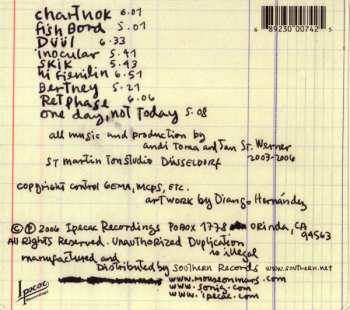 chartnok 6.07
fish Bord 5.07
Duul 6.33
inocular 5.41
skik 5.43
hi fienilin 6.51
Bertney 5.21
Retphase 6.06
one day, not today 5.08
6 89230 00742 5
all music and production by
andi Toma and Jan St. Werner
ST martin Tonstudio Düsseldorf 2003-2006
copyright control GEMA, MCPS, ETC.
artwork by Diango Hernández
© ℗ 2006 Ipecac Recordings POBOX 1778 ORINDA, CA 94563
All Rights Reserved. Unauthorized Duplication
is illegal
manufactured and
Distributed by Southern Records www.southern.net
www.mouseonmars.com
www.sonig.com
www.ipecac.com
Ipecac
Recordings